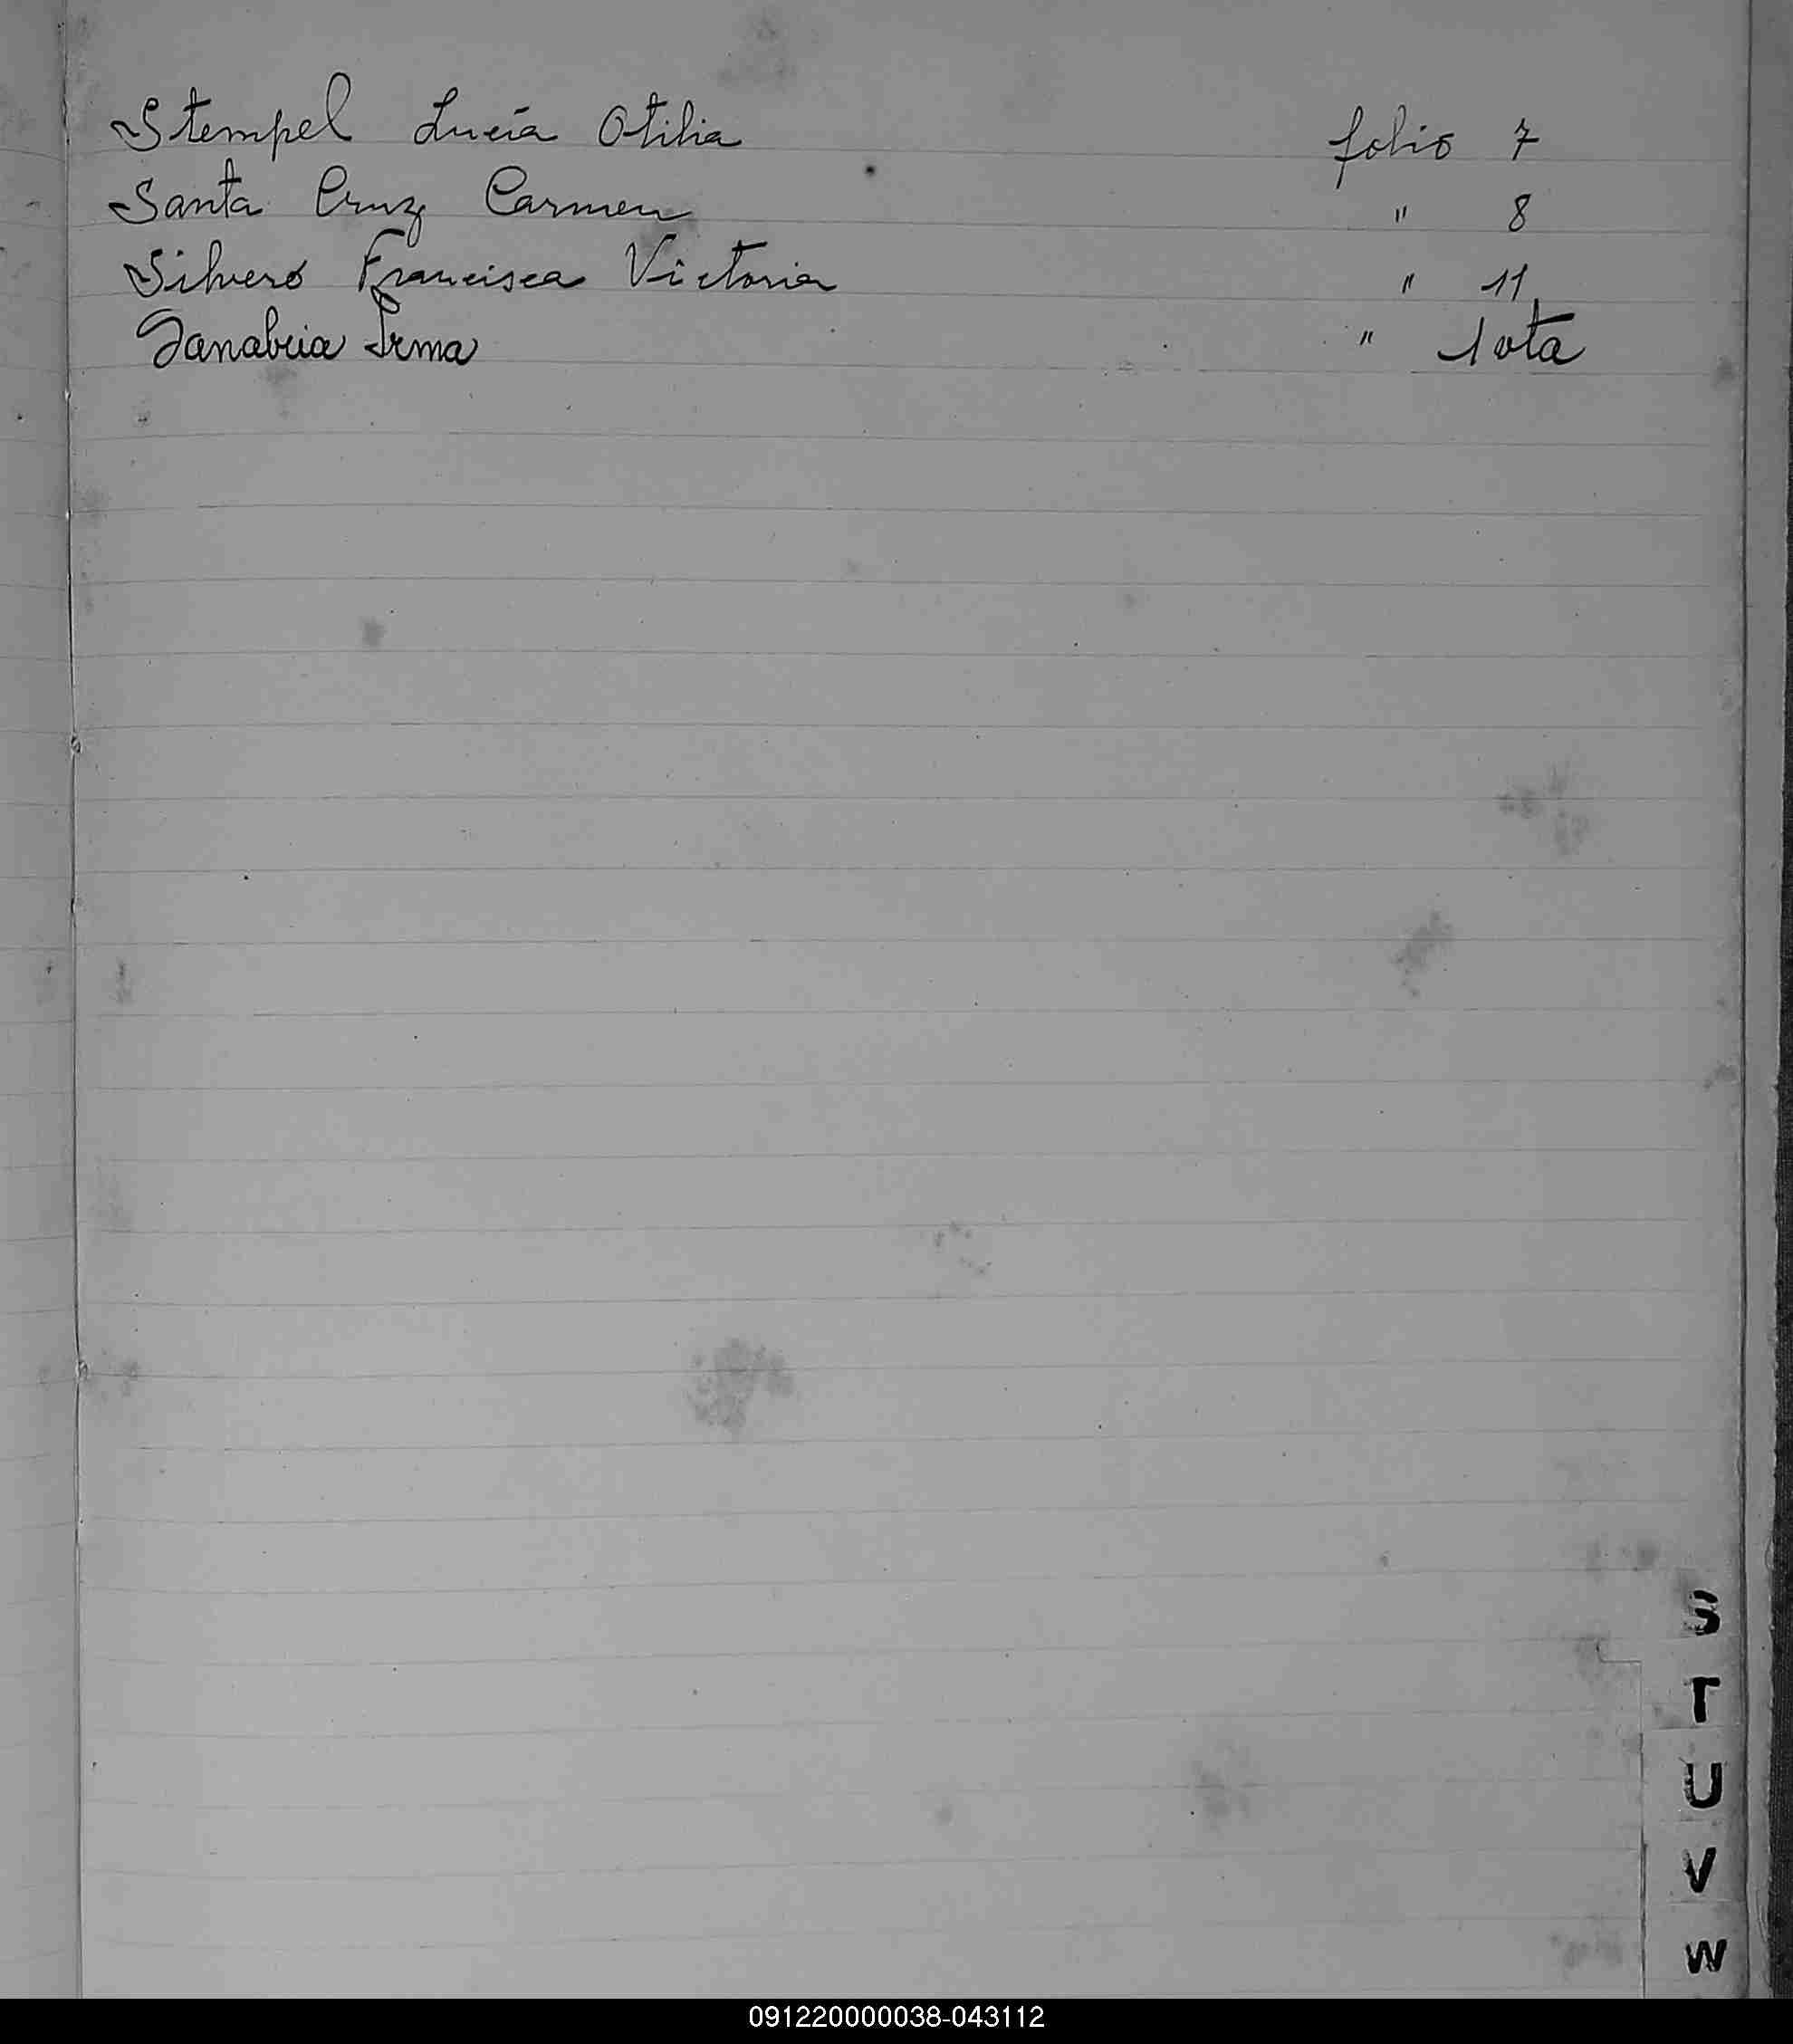 Stempel Lucía Otilia folio 7
Santa Cruz Carmen " 8
Silvero Francisca Victoria " 11
Sanabria Irma " 1 vta
S
T
U
V
W
091220000038-043112